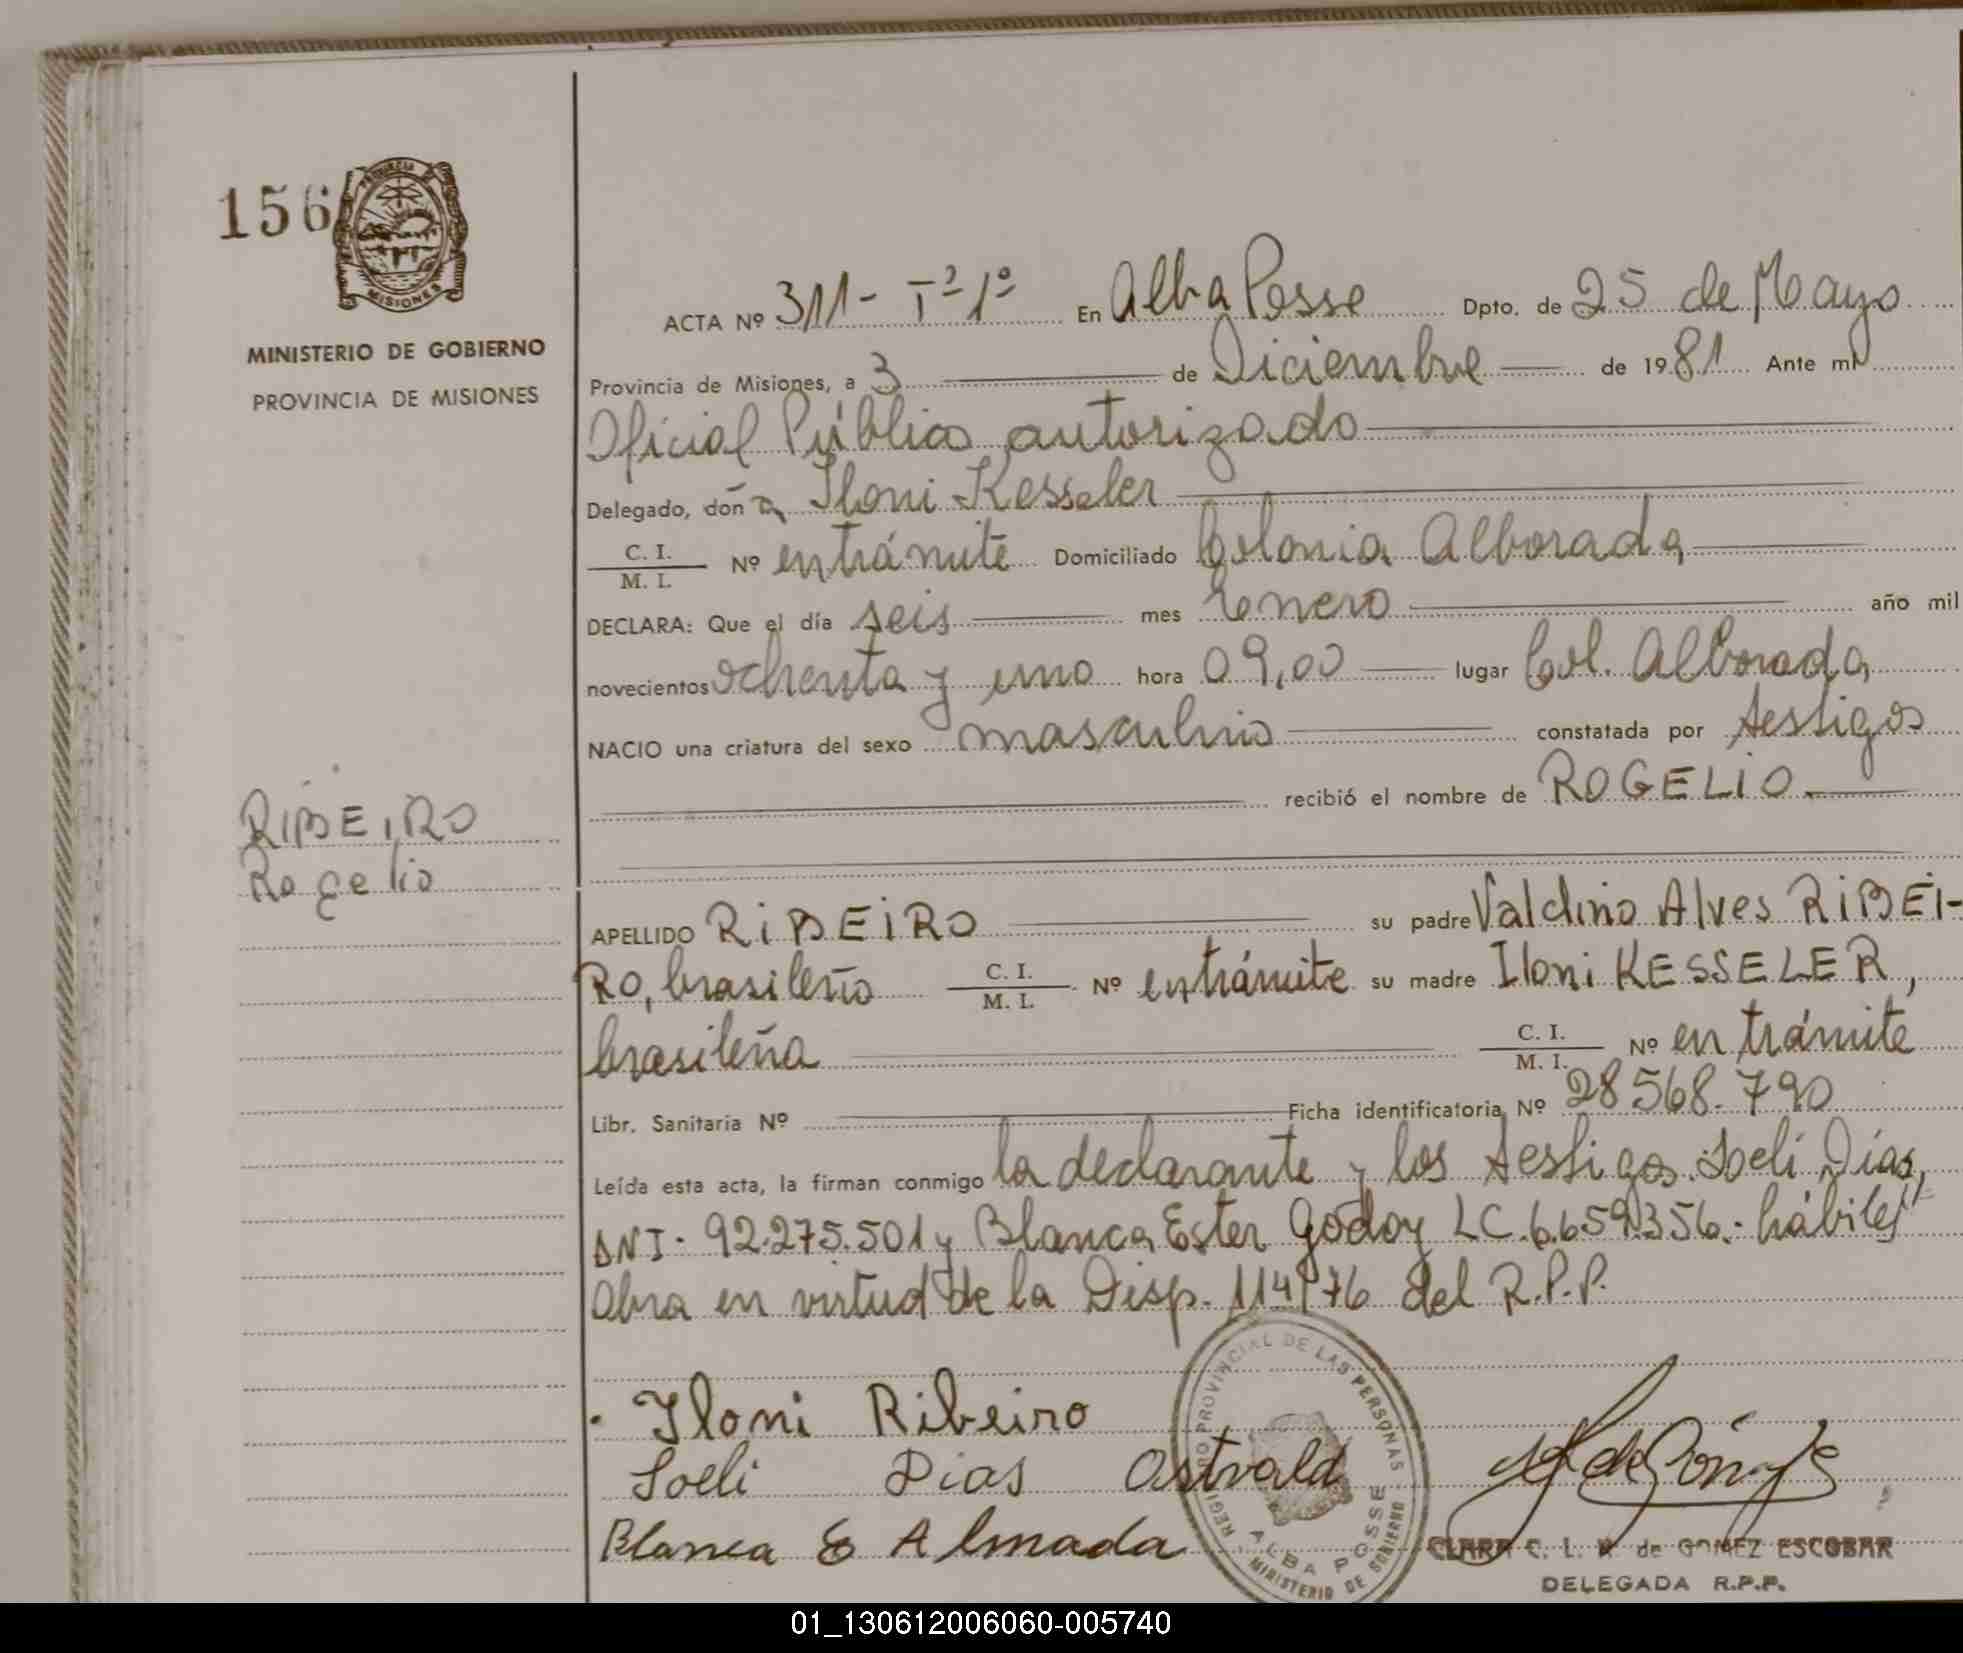 156
PROVINCIA DE
MISIONES
MINISTERIO DE GOBIERNO
PROVINCIA DE MISIONES
RIBEIRO
Rogelio
ACTA Nº 311- Tº 1º En Alba Posse Dpto. de 25 de Mayo
Provincia de Misiones, a 3 de Diciembre de 1981 Ante mí
Oficial Público autorizado
Delegado, doña Iloni Kesseler
C. I. / M. I. Nº entrámite Domiciliado Colonia Alborada
DECLARA: Que el día seis mes Enero año mil
novecientos ochenta y uno hora 09,00 lugar Col. Alborada
NACIO una criatura del sexo masculino constatada por testigos
recibió el nombre de ROGELIO.
APELLIDO RIBEIRO su padre Valdino Alves RIBEI-
RO, brasileño C. I. / M. I. Nº entrámite su madre Iloni KESSELER,
brasileña C. I. / M. I. Nº en trámite
Libr. Sanitaria Nº Ficha identificatoria Nº 28568.790
Leída esta acta, la firman conmigo la declarante y los testigos Soeli Días,
DNI. 92.275.501 y Blanca Ester Godoy LC. 6.659.356.- hábiles
Obra en virtud de la Disp. 114/76 del R.P.P.
Iloni Ribeiro
Soeli Dias Ostvald
Blanca E Almada
REGISTRO PROVINCIAL DE LAS PERSONAS
ALBA POSSE
MINISTERIO DE GOBIERNO
CLARA C. L. de GOMEZ ESCOBAR
DELEGADA R.P.P.
01_130612006060-005740